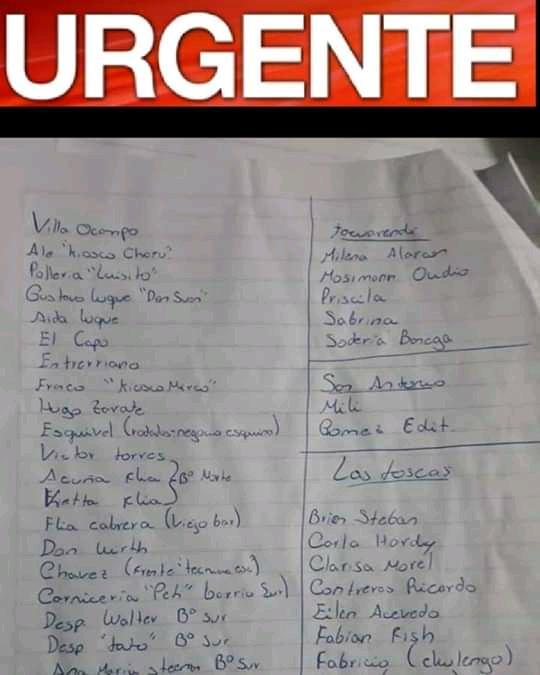 URGENTE
Villa Ocampo
Ale "kiosco Charu"
Polleria "Luisito"
Gustavo Luque "Don Suon"
Aida Luque
El Capo
Entrerriano
Franco "kiosco Mirco"
Hugo Zarate
Esquivel (rodados-negocio esquina)
Victor torres
Acuña flia } Bº Norte
flia
Flia cabrera (Viejo bar)
Don Wirth
Chavez (frente tecnica)
Carniceria "Peh" barrio Sur)
Desp. Walter Bº Sur
Desp "tato" Bº Sur
Ana Maria Bº Sur
tacuarendi
Milena Alarcon
Mosimann Oudio
Priscila
Sabrina
Soderia Borega
San Antonio
Mili
Gomez Edit.
Las toscas
Brian Steban
Carla Hardy
Clarisa Morel
Contreras Ricardo
Eilen Acevedo
Fabian Fish
Fabricio (chulengo)